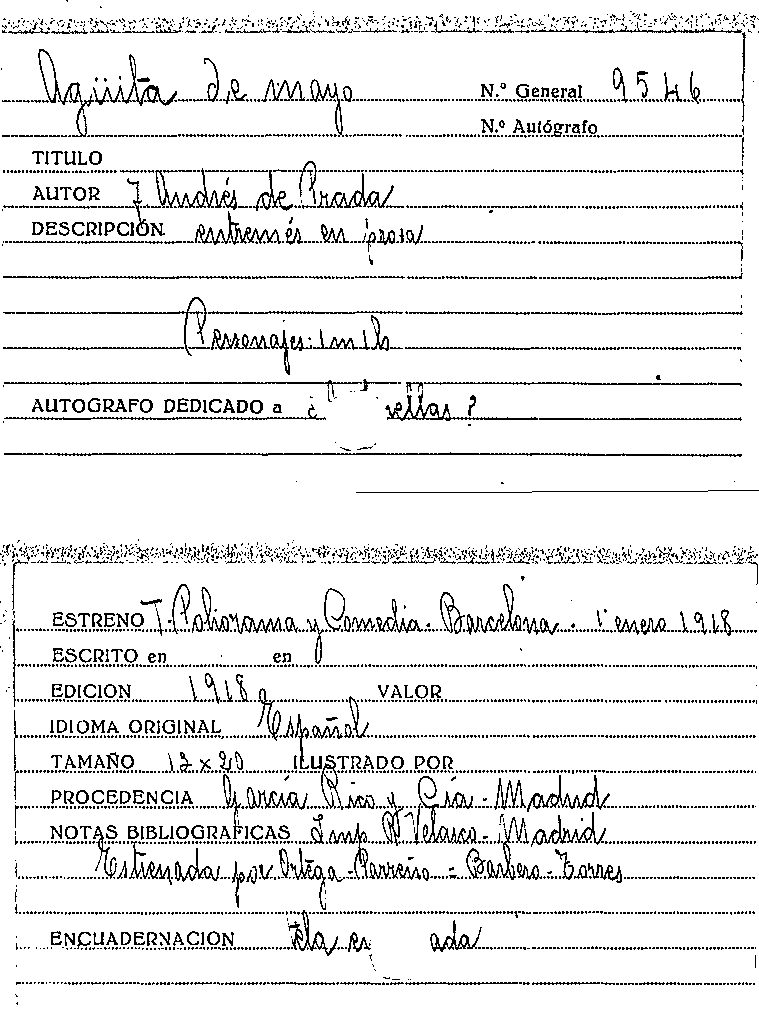 Agüita de mayo
N.º General 9546
N.º Autógrafo
TITULO
AUTOR J Andrés de Prada
DESCRIPCIÓN entremés en prosa
Personajes: 1m 1h
AUTOGRAFO DEDICADO a ¿ rellas ?
ESTRENO T. Poliorama y Comedia - Barcelona - 1º enero 1918
ESCRITO en en
EDICION 1918 VALOR
IDIOMA ORIGINAL Español
TAMAÑO 13 x 20 ILUSTRADO POR
PROCEDENCIA García Rico y Cía - Madrid
NOTAS BIBLIOGRAFICAS Imp R Velasco - Madrid
Estrenada por Ortega - Parreño = Barbero - Torres
ENCUADERNACION tela ada